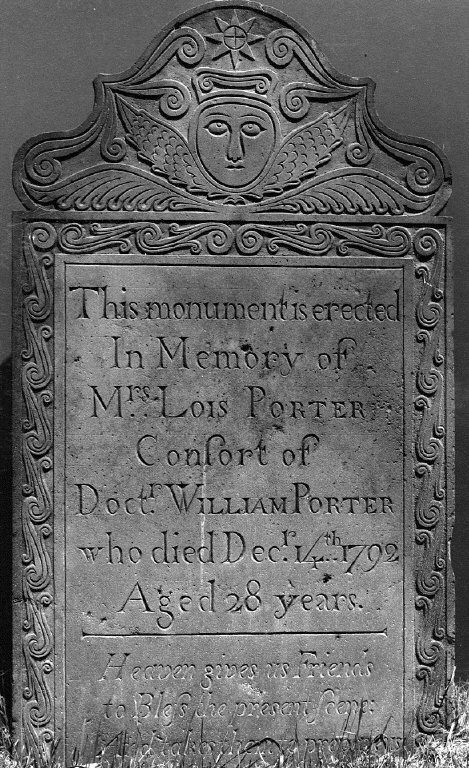 This monument is erected
In Memory of
Mrs. Lois Porter
Conſort of
Doctr. William Porter
who died Decr. 14th. 1792
Aged 28 years.
Heaven gives us Friends
to Bleſs the present ſcene:
And takes them to prepare us